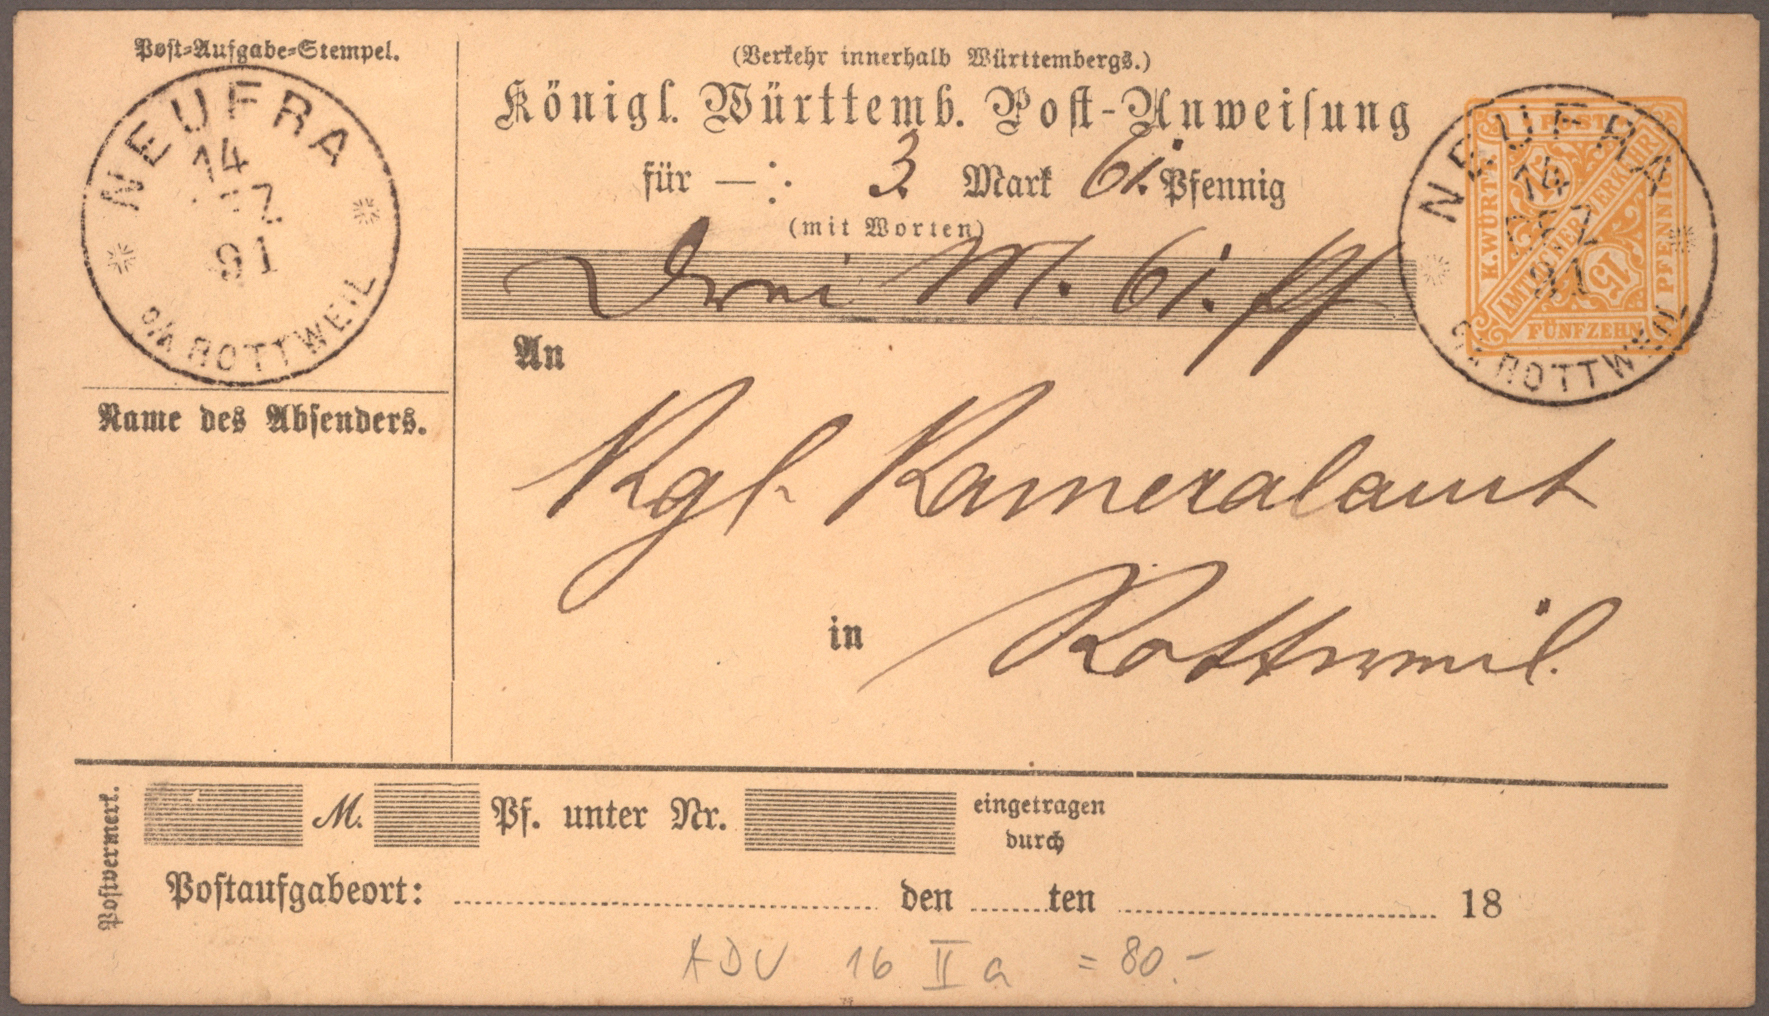 Post-Aufgabe-Stempel.
NEUFRA
14
DEZ
91
o/A ROTTWEIL
Name des Absenders.
(Verkehr innerhalb Württembergs.)
Königl. Württemb. Post-Anweisung
für —: 3. Mark 61. Pfennig
(mit Worten)
Drei M. 61. Pf
An
Kgl. Kameralamt
in Rottweil.
POST
K. WÜRTT.
AMTLICHER VERKEHR
15
15
PFENNIG
FÜNFZEHN
NEUFRA
14
DEZ
91
o/A ROTTWEIL
Postvermerk.
M. Pf. unter Nr. eingetragen
durch
Postaufgabeort: den ten 18
ADU 16 II a = 80.-